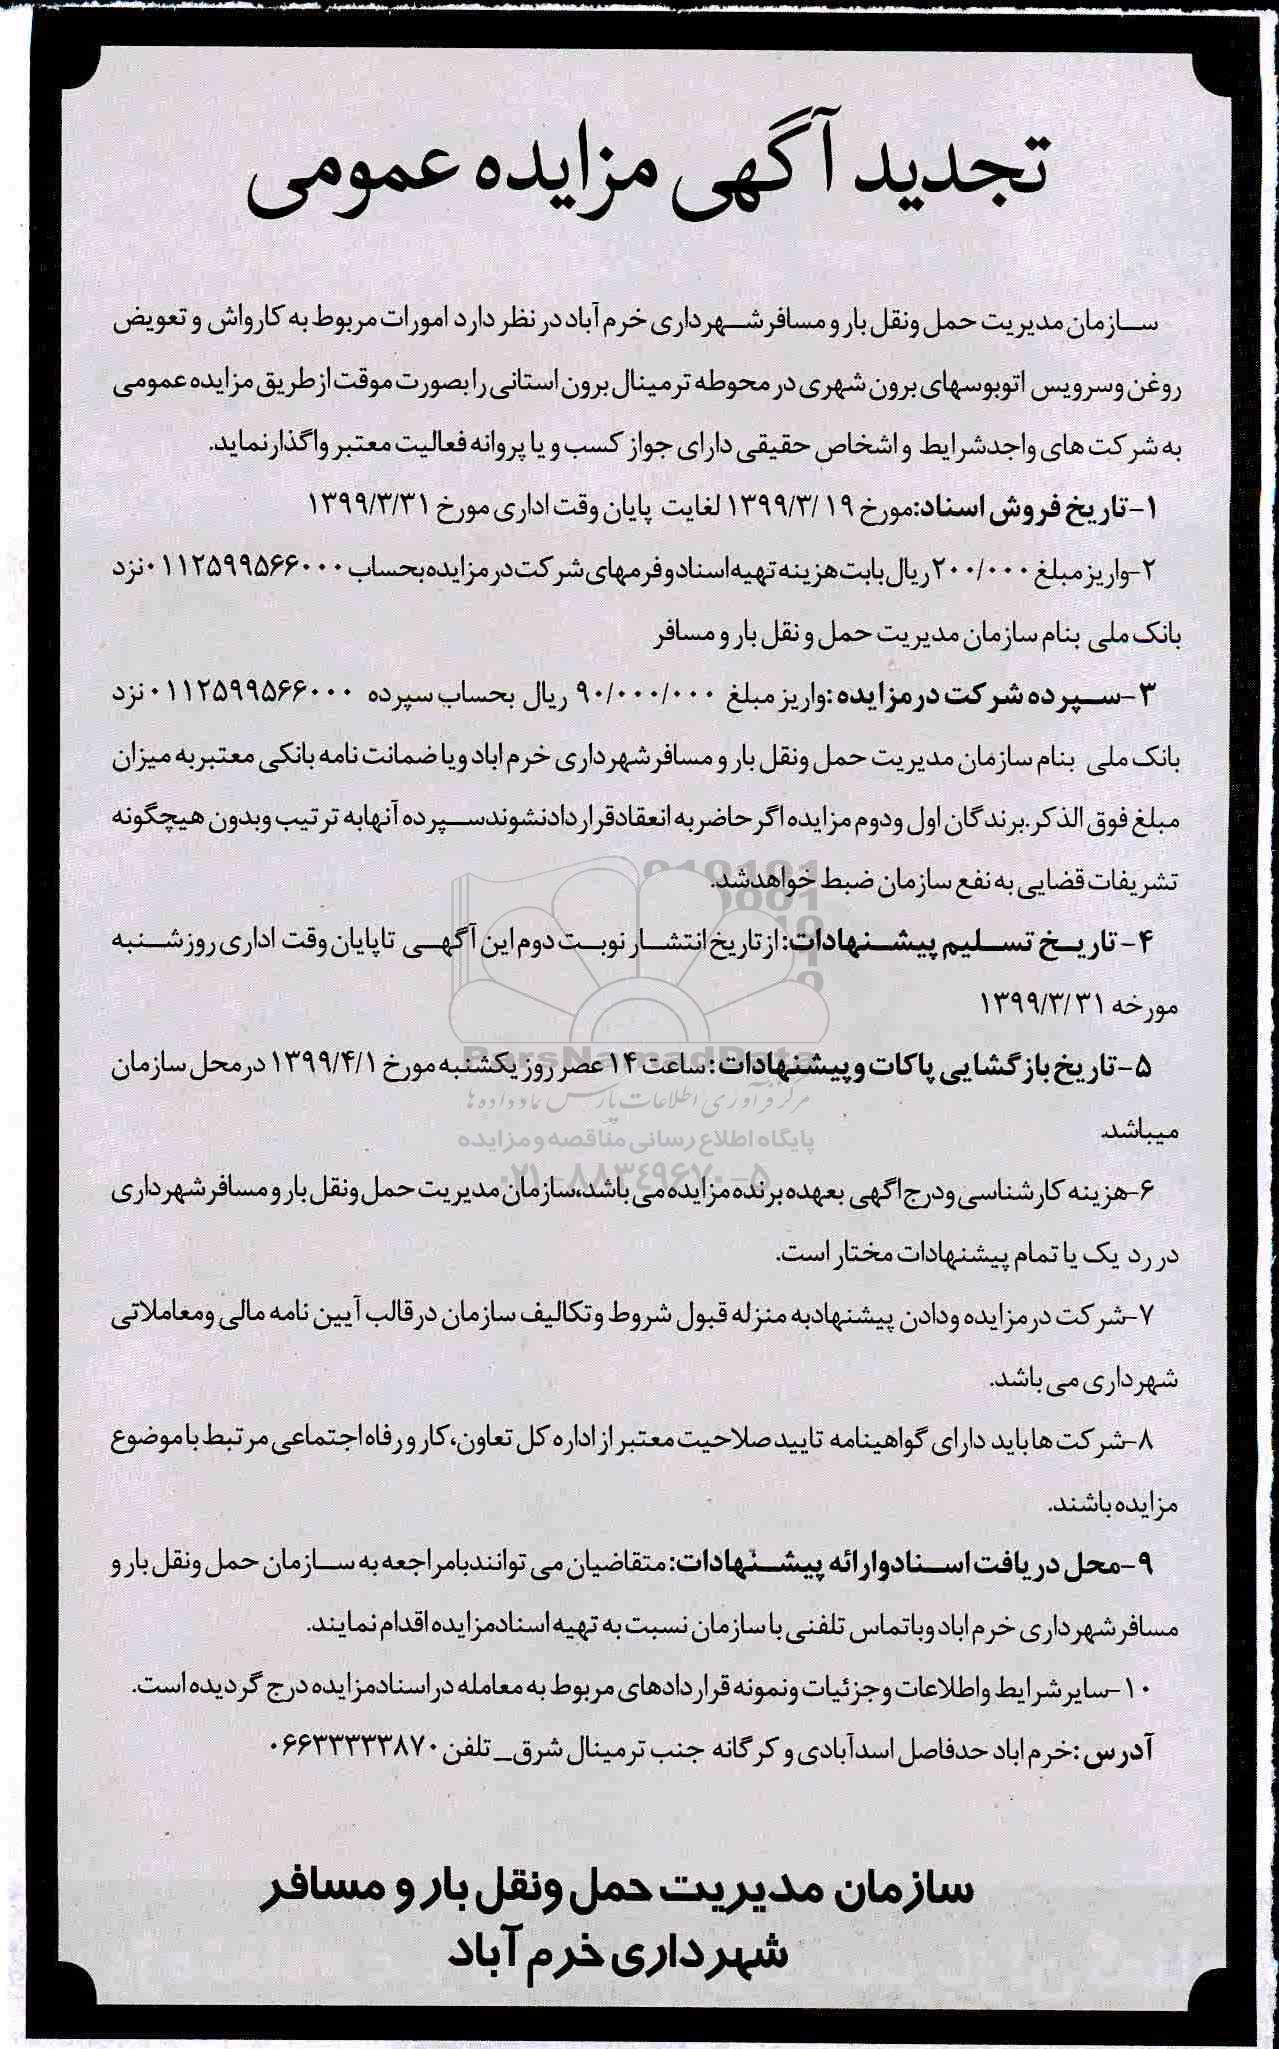 تجدید آگهی مزایده عمومی
سازمان مدیریت حمل ونقل بار و مسافر شهرداری خرم آباد در نظر دارد امورات مربوط به کارواش و تعویض
روغن وسرویس اتوبوسهای برون شهری در محوطه ترمینال برون استانی را بصورت موقت از طریق مزایده عمومی
به شرکت های واجدشرایط و اشخاص حقیقی دارای جواز کسب و یا پروانه فعالیت معتبر واگذارنماید.
۱-تاریخ فروش اسناد:مورخ ۱۳۹۹/۳/۱۹ لغایت پایان وقت اداری مورخ ۱۳۹۹/۳/۳۱
۲-واریز مبلغ ۲۰۰/۰۰۰ ریال بابت هزینه تهیه اسناد و فرمهای شرکت در مزایده بحساب ۰۱۱۲۵۹۹۵۶۶۰۰۰ نزد
بانک ملی بنام سازمان مدیریت حمل و نقل بار و مسافر
۳-سپرده شرکت در مزایده :واریز مبلغ ۹۰/۰۰۰/۰۰۰ ریال بحساب سپرده ۰۱۱۲۵۹۹۵۶۶۰۰۰ نزد
بانک ملی بنام سازمان مدیریت حمل ونقل بار و مسافر شهرداری خرم اباد ویا ضمانت نامه بانکی معتبر به میزان
مبلغ فوق الذکر.برندگان اول ودوم مزایده اگر حاضر به انعقاد قرار دادنشوند سپرده آنها به ترتیب وبدون هیچگونه
تشریفات قضایی به نفع سازمان ضبط خواهدشد.
۴- تاریخ تسلیم پیشنهادات: از تاریخ انتشار نوبت دوم این آگهی تاپایان وقت اداری روز شنبه
مورخه ۱۳۹۹/۳/۳۱
۵-تاریخ بازگشایی پاکات و پیشنهادات: ساعت ۱۴ عصر روز یکشنبه مورخ ۱۳۹۹/۴/۱ در محل سازمان
ParsNamadData
مرکز فرآوری اطلاعات پارس نماد داده ها
میباشد.
پایگاه اطلاع رسانی مناقصه و مزایده
۰۲۱-۸۸۳۴۹۶۷۰-۵
۶-هزینه کارشناسی ودرج اگهی بعهده برنده مزایده می باشد،سازمان مدیریت حمل ونقل بار و مسافر شهرداری
در رد یک یا تمام پیشنهادات مختار است.
۷-شرکت درمزایده ودادن پیشنهادبه منزله قبول شروط و تکالیف سازمان در قالب آیین نامه مالی ومعاملاتی
شهرداری می باشد.
۸-شرکت ها باید دارای گواهینامه تایید صلاحیت معتبر از اداره کل تعاون،کار و رفاه اجتماعی مرتبط با موضوع
مزایده باشند.
۹-محل دریافت اسنادوارائه پیشنهادات: متقاضیان می توانندبامراجعه به سازمان حمل ونقل بار و
مسافر شهرداری خرم اباد وباتماس تلفنی با سازمان نسبت به تهیه اسنادمزایده اقدام نمایند.
۱۰-سایر شرایط واطلاعات وجزئیات ونمونه قراردادهای مربوط به معامله در اسنادمزایده درج گردیده است.
آدرس :خرم اباد حدفاصل اسدآبادی و کرگانه جنب ترمینال شرق_ تلفن ۰۶۶۳۳۳۳۳۸۷۰
سازمان مدیریت حمل ونقل بار و مسافر
شهرداری خرم آباد